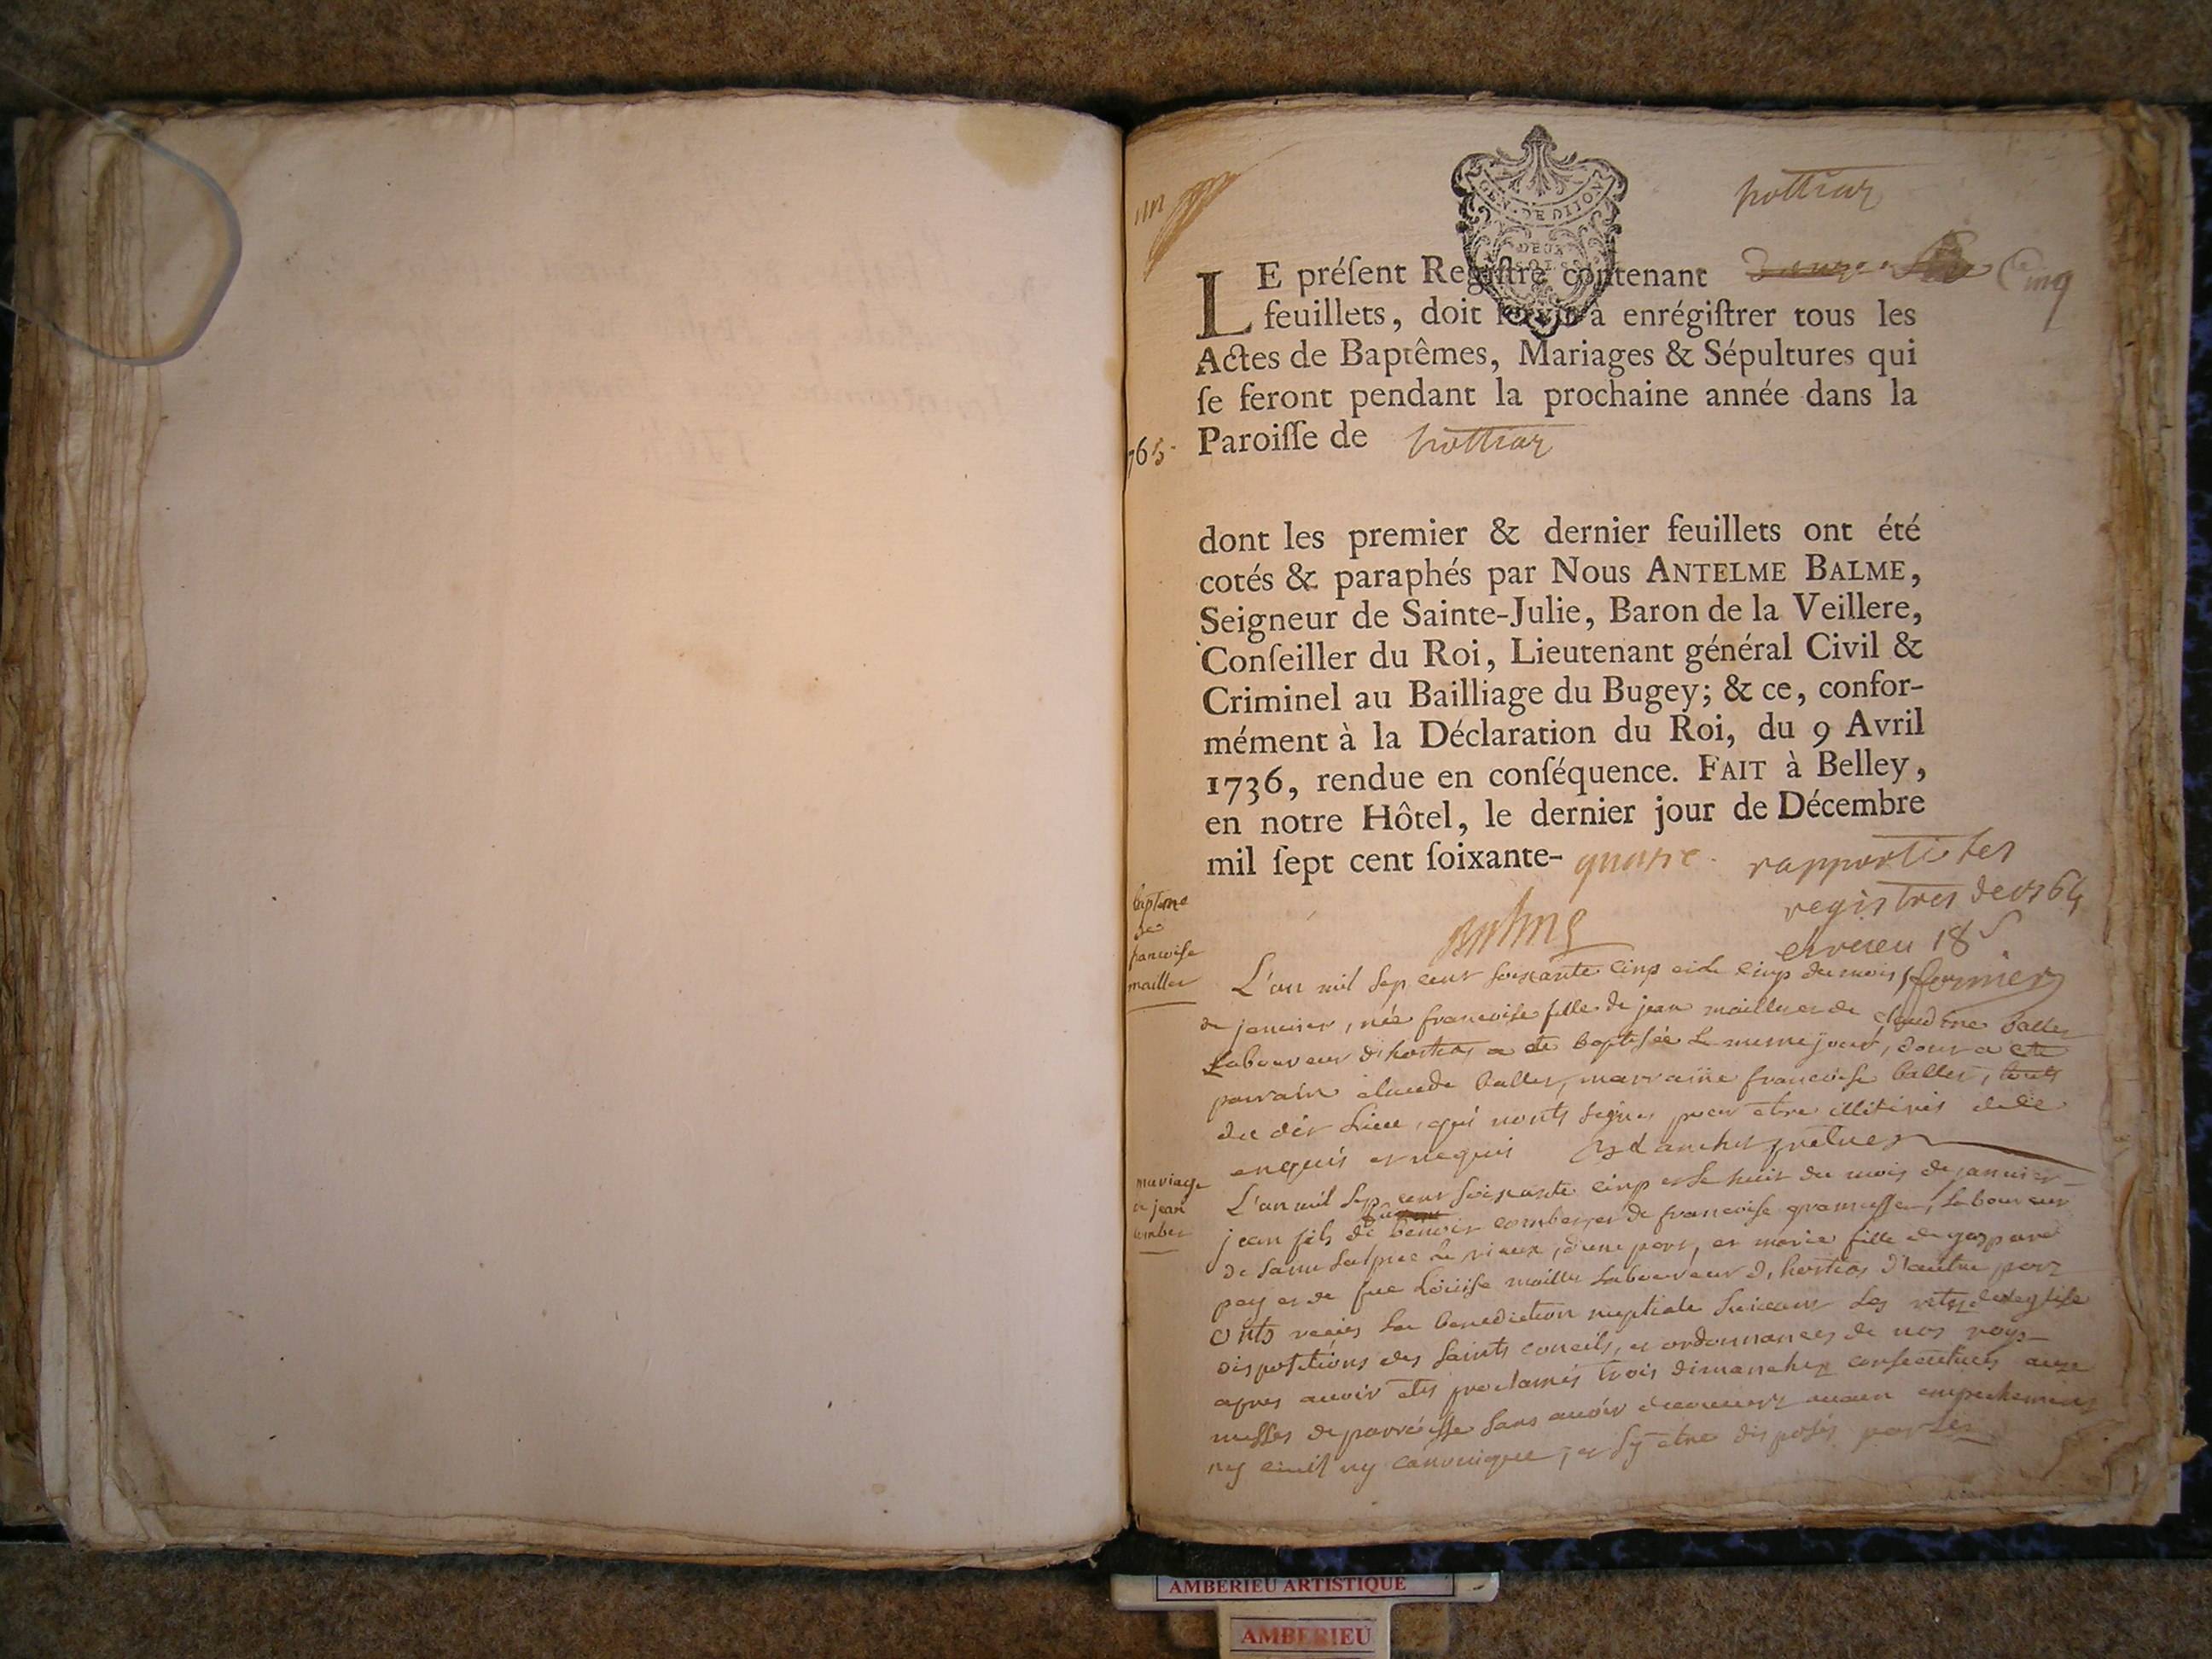 hottias
GEN. DE DIJON
DEUX
SOLS
LE préſent Regiſtre contenant Cinq
feuillets, doit ſervir à enrégiſtrer tous les
Actes de Baptêmes, Mariages & Sépultures qui
ſe feront pendant la prochaine année dans la
765. Paroiſſe de hottias
dont les premier & dernier feuillets ont été
cotés & paraphés par Nous ANTELME BALME,
Seigneur de Sainte-Julie, Baron de la Veillere,
Conſeiller du Roi, Lieutenant général Civil &
Criminel au Bailliage du Bugey; & ce, confor-
mément à la Déclaration du Roi, du 9 Avril
1736, rendue en conſéquence. FAIT à Belley,
en notre Hôtel, le dernier jour de Décembre
mil ſept cent ſoixante- quatre.
rapporté les
registres de 1764
et receu 18 s
Balme
bapteme
de
francoise
mailler
L'an mil sep cent soixante cinq et le cinq du mois
de janvier, née francoise fille de jean mailler et de claudine baller
Laboureur d'hostias a été baptisée le meme jour, dont a été
parrain claude baller, marraine francoise baller, touts
du dit Lieu, qui nonts signés pour etre illitérés de ce
enquis et requis
mariage
de jean
comber
L'an mil sep cent soixante cinq et le huit du mois de janvier
jean fils de benoit comber et de francoise gramusse, Laboureur
de saint sulpice le vieux, d'une part, et marie fille de gaspard
pey et de fue Loüise mailler Laboureur d'hostias d'autre part
onts recües La benediction nuptiale suivant Les de L'eglise
dispositions des saints concils, et ordonnances de nos roys
apres avoir étés proclamés trois dimanches consecutives aux
messes de parroisse sans avoir decouvert aucun empechement
ny civil ny canonique, et s'y etre disposés par Les
AMBERIEU ARTISTIQUE
AMBERIEU